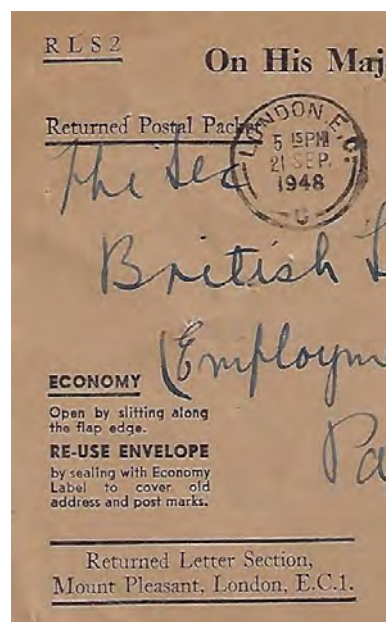 RLS2
On His Maj
Returned Postal Packet
LONDON. E.C.
5 15PM
21 SEP.
1948
C
The Sec
British L
(Employm
Pa
ECONOMY
Open by slitting along
the flap edge.
RE-USE ENVELOPE
by sealing with Economy
Label to cover old
address and post marks.
Returned Letter Section,
Mount Pleasant, London, E.C.1.